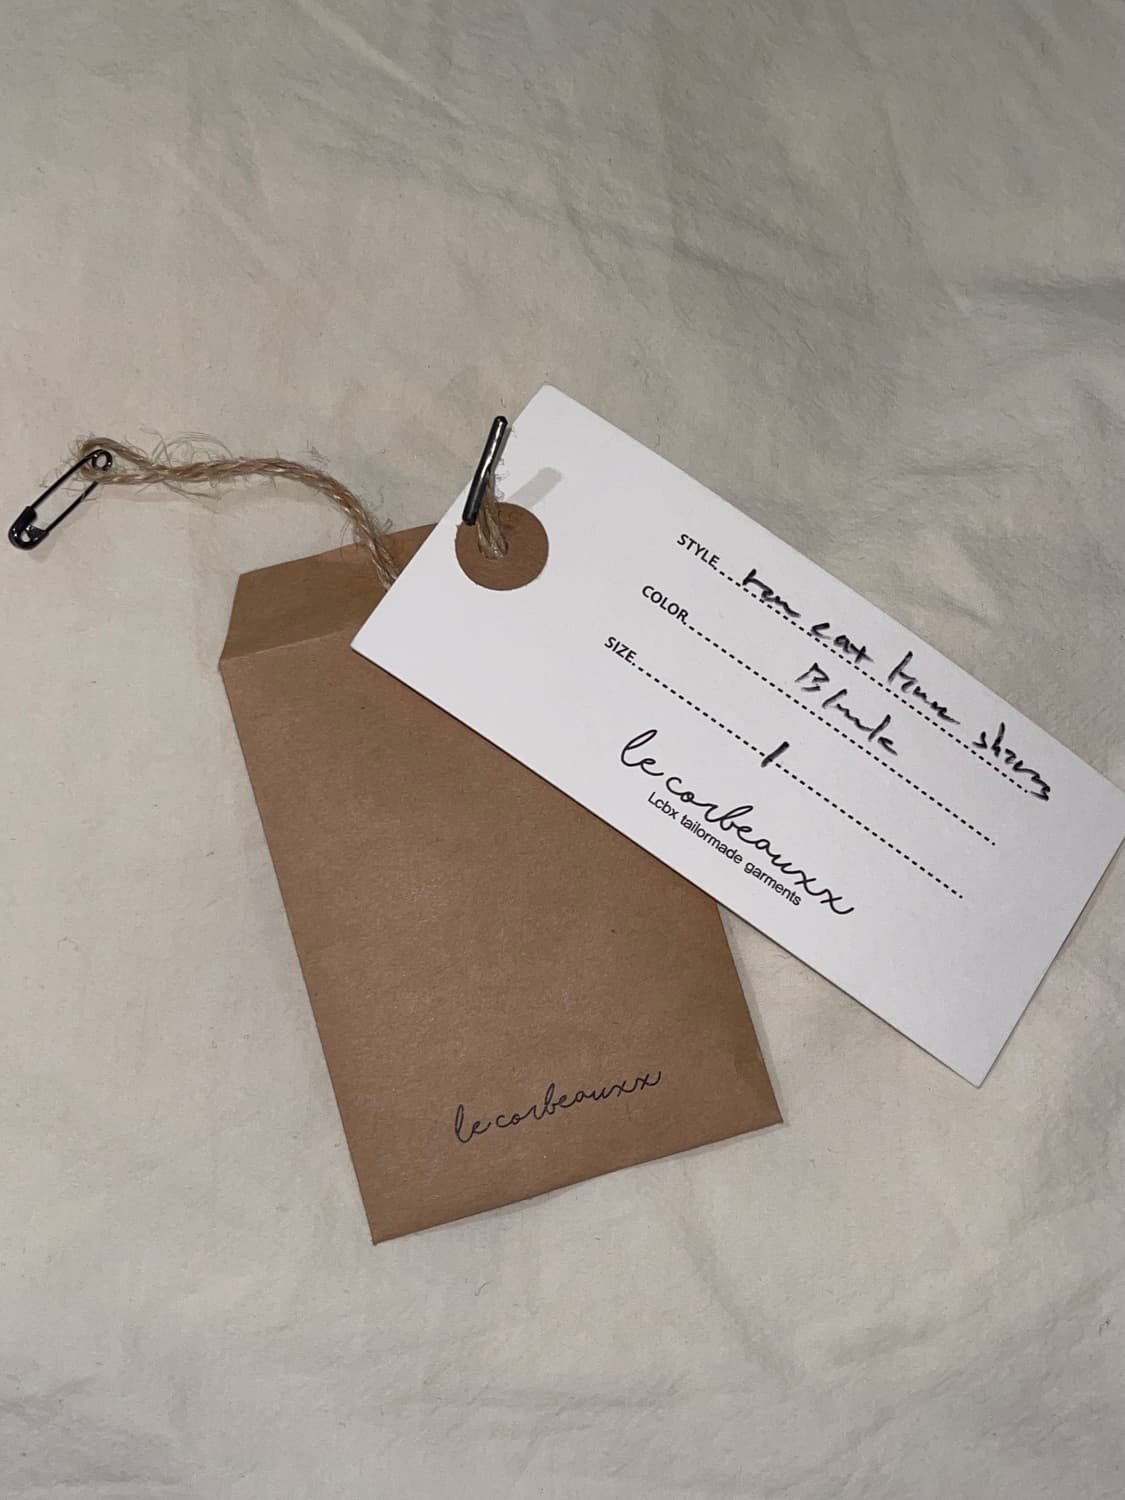 STYLE raw cut knee shorts
COLOR Black
SIZE 1
le corbeauxx
Lcbx tailormade garments
le corbeauxx